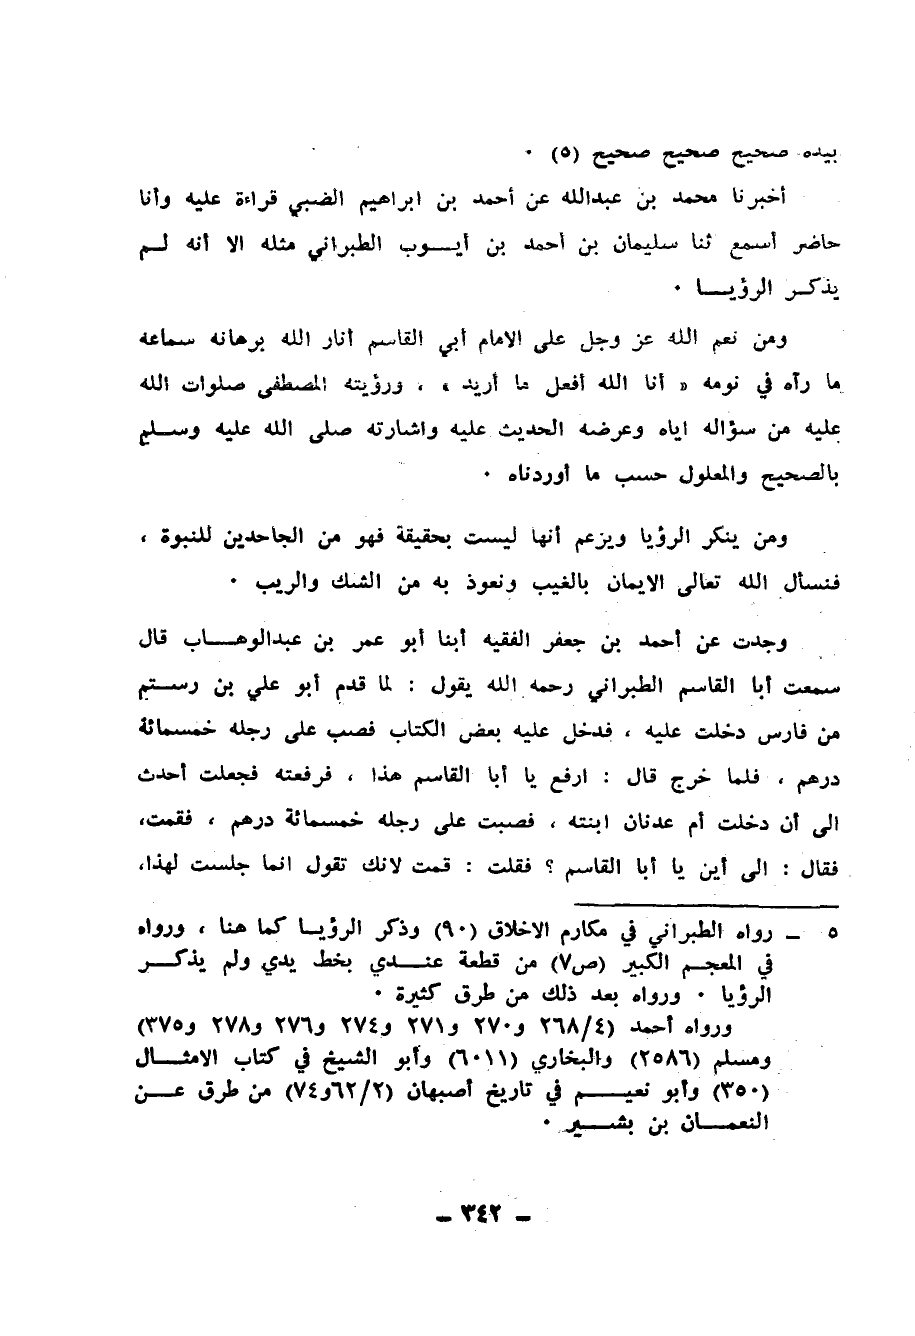 بيده صحيح صحيح صحيح (٥) ٠
أخبرنا محمد بن عبدالله عن أحمد بن ابراهيم الضبي قراءة عليه وأنا
حاضر أسمع ثنا سليمان بن أحمد بن أيــوب الطبراني مثله الا أنه لــم
يذكــر الرؤيــا ٠
ومن نعم الله عز وجل على الامام أبي القاسم أنار الله برهانه سماعه
ما رآه في نومه « أنا الله أفعل ما أريد » ، ورؤيته المصطفى صلوات الله
عليه من سؤاله اياه وعرضه الحديث عليه واشارته صلى الله عليه وســلم
بالصحيح والمعلول حسب ما أوردناه ٠
ومن ينكر الرؤيا ويزعم أنها ليست بحقيقة فهو من الجاحدين للنبوة ،
فنسأل الله تعالى الايمان بالغيب ونعوذ به من الشك والريب ٠
وجدت عن أحمد بن جعفر الفقيه أبنا أبو عمر بن عبدالوهــاب قال
سمعت أبا القاسم الطبراني رحمه الله يقول : لما قدم أبو علي بن رســتم
من فارس دخلت عليه ، فدخل عليه بعض الكتاب فصب على رجله خمسمائة
درهم ، فلما خرج قال : ارفع يا أبا القاسم هذا ، فرفعته فجعلت أحدث
الى أن دخلت أم عدنان ابنته ، فصبت على رجله خمسمائة درهم ، فقمت،
فقال : الى أين يا أبا القاسم ؟ فقلت : قمت لانك تقول انما جلست لهذا،
٥ ــ رواه الطبراني في مكارم الاخلاق (٩٠) وذكر الرؤيــا كما هنا ، ورواه
في المعجــم الكبير (ص٧) من قطعة عنــدي بخط يدي ولم يذكــر
الرؤيا ٠ ورواه بعد ذلك من طرق كثيرة ٠
ورواه أحمد (٢٦٨/٤ و٢٧٠ و٢٧١ و٢٧٤ و٢٧٦ و٢٧٨ و٣٧٥)
ومسلم (٢٥٨٦) والبخاري (٦٠١١) وأبو الشيخ في كتاب الامثــال
(٣٥٠) وأبو نعيــــم في تاريخ أصبهان (٦٢/٢و٧٤) من طرق عــن
النعمــان بن بشــير ٠
ــ ٣٤٢ ــ